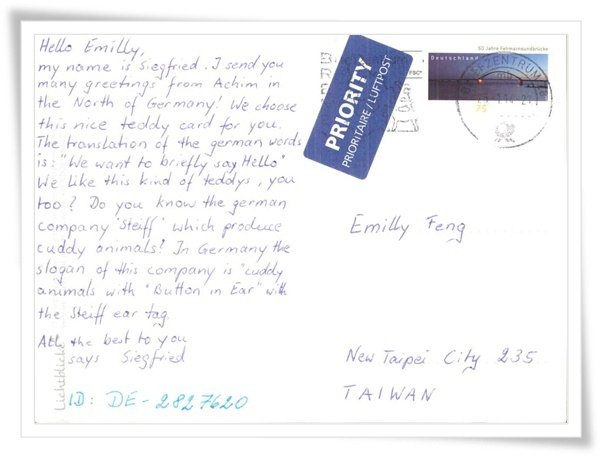 Hello Emilly,
my name is Siegfried. I send you
many greetings from Achim in
the North of Germany! We choose
this nice teddy card for you.
The translation of the german words
is: "We want to briefly say Hello"
We like this kind of teddys, you
too? Do you know the german
company 'Steiff' which produce
cuddy animals? In Germany the
slogan of this company is "cuddy
animals with "Button in Ear" with
the Steiff ear tag.
All the best to you
says Siegfried
ID: DE-2827620
Lichtblicke
PRIORITY
PRIORITAIRE / LUFTPOST
50 Jahre Fehmarnsundbrücke
Deutschland
75
Emilly Feng
New Taipei City 235
TAIWAN